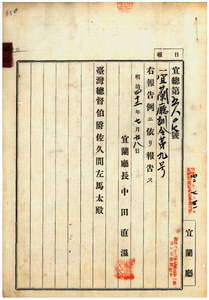 報告
宜總第五八〇七號
一宜蘭廳訓令第九号
右報告例ニ依リ報告ス
明治四十一年七月廿八日
宜蘭廳長中田直溫
臺灣總督伯爵佐久間左馬太殿
宜蘭廳